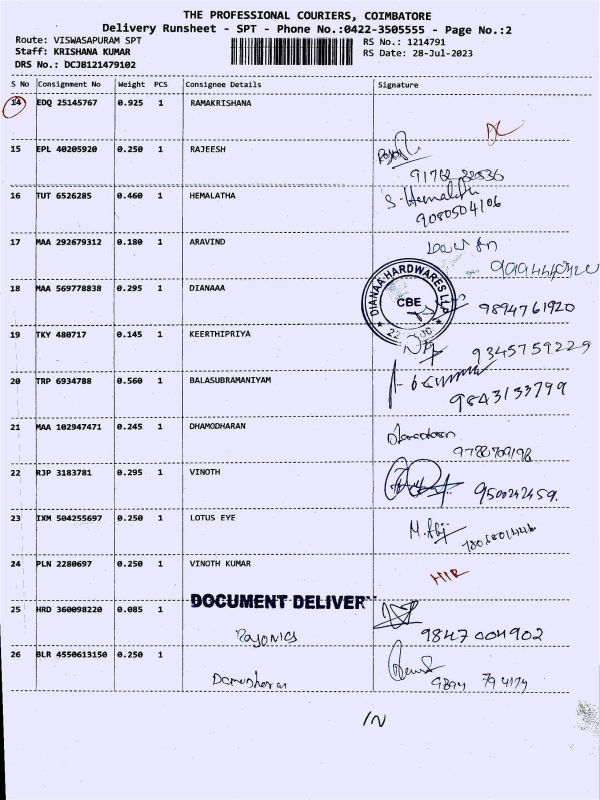 THE PROFESSIONAL COURIERS, COIMBATORE
Delivery Runsheet - SPT - Phone No.:0422-3505555 - Page No.:2
Route: VISWASAPURAM SPT
RS No.: 1214791
Staff: KRISHANA KUMAR
RS Date: 28-Jul-2023
DRS No.: DCJB121479102
S No Consignment No Weight PCS Consignee Details Signature
14 EDQ 25145767 0.925 1 RAMAKRISHANA
DC
15 EPL 40205920 0.250 1 RAJEESH
16 TUT 6526285 0.460 1 HEMALATHA S. Hemalatha
9080504106
17 MAA 292679312 0.180 1 ARAVIND
18 MAA 569778838 0.295 1 DIANAAA
DIANAA HARDWARES LLP
CBE
9894761920
19 TKY 480717 0.145 1 KEERTHIPRIYA
9345759229
20 TRP 6934788 0.560 1 BALASUBRAMANIYAM
9843133799
21 MAA 102947471 0.245 1 DHAMODHARAN
22 RJP 3183781 0.295 1 VINOTH
9500242459.
23 IXM 504255697 0.250 1 LOTUS EYE
24 PLN 2280697 0.250 1 VINOTH KUMAR
DOCUMENT DELIVERY
25 HRD 360098220 0.085 1
9847004902
26 BLR 4550613150 0.250 1
IN